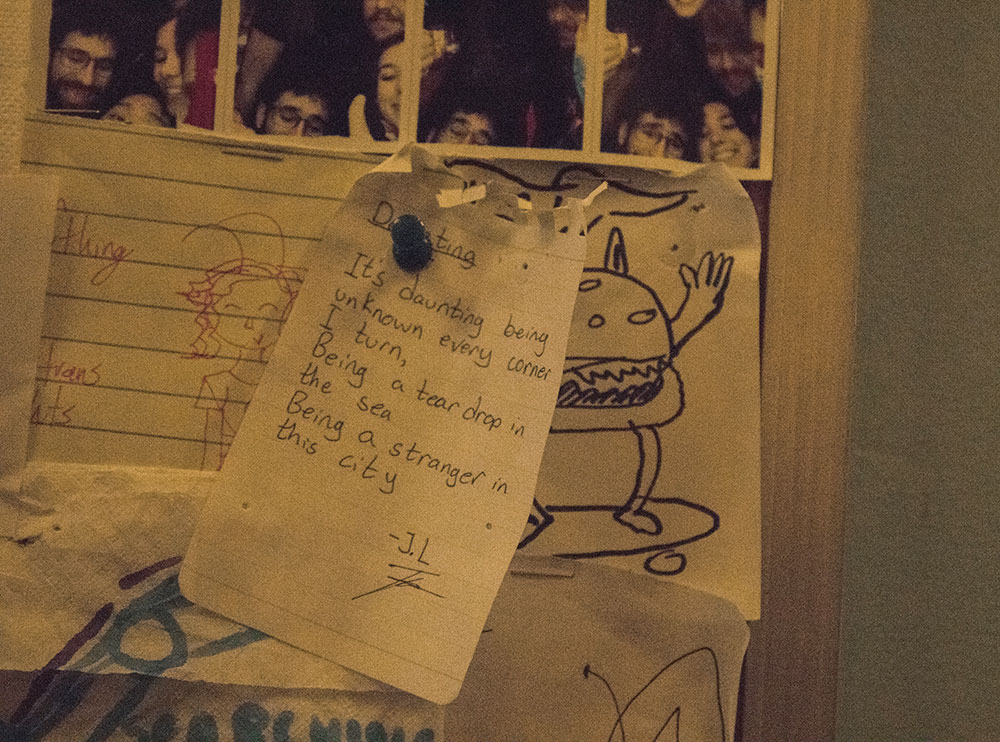 thing
trans
Daunting
It's daunting being
unknown every corner
I turn,
Being a tear drop in
the sea
Being a stranger in
this city
-J.L